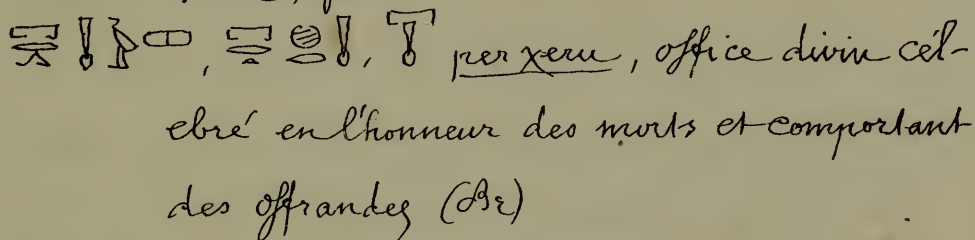 per xeru, office divin cél-
ebré en l'honneur des morts et comportant
des offrandes (Br)